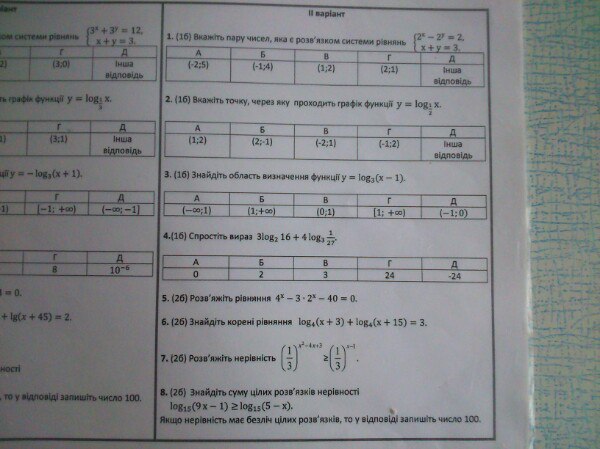 іант
ком системи рівнянь {3ˣ + 3ʸ = 12, x + y = 3.
Г Д
2) (3;0) Інша відповідь
ь графік функції y = log_{1/3} x.
Г Д
(3;1) Інша відповідь
y = −log₃(x + 1).
Г Д
[−1; +∞) (−∞; −1]
Г Д
8 10⁻⁶
= 0.
+ lg(x + 45) = 2.
ності
, то у відповіді запишіть число 100.
ІІ варіант
1. (1б) Вкажіть пару чисел, яка є розв'язком системи рівнянь {2ˣ − 2ʸ = 2, x + y = 3.
А Б В Г Д
(-2;5) (-1;4) (1;2) (2;1) Інша відповідь
2. (1б) Вкажіть точку, через яку проходить графік функції y = log_{1/2} x.
А Б В Г Д
(1;2) (2;-1) (-2;1) (-1;2) Інша відповідь
3. (1б) Знайдіть область визначення функції y = log₃(x − 1).
А Б В Г Д
(−∞;1) (1;+∞) (0;1) [1; +∞) (−1; 0)
4.(1б) Спростіть вираз 3log₂ 16 + 4 log₃ 1/27.
А Б В Г Д
0 2 3 24 -24
5. (2б) Розв'яжіть рівняння 4ˣ − 3 · 2ˣ − 40 = 0.
6. (2б) Знайдіть корені рівняння log₄(x + 3) + log₄(x + 15) = 3.
7. (2б) Розв'яжіть нерівність (1/3)^{x²−4x+3} ≥ (1/3)^{x−1}.
8. (2б) Знайдіть суму цілих розв'язків нерівності
log₁₅(9x − 1) ≥ log₁₅(5 − x).
Якщо нерівність має безліч цілих розв'язків, то у відповіді запишіть число 100.